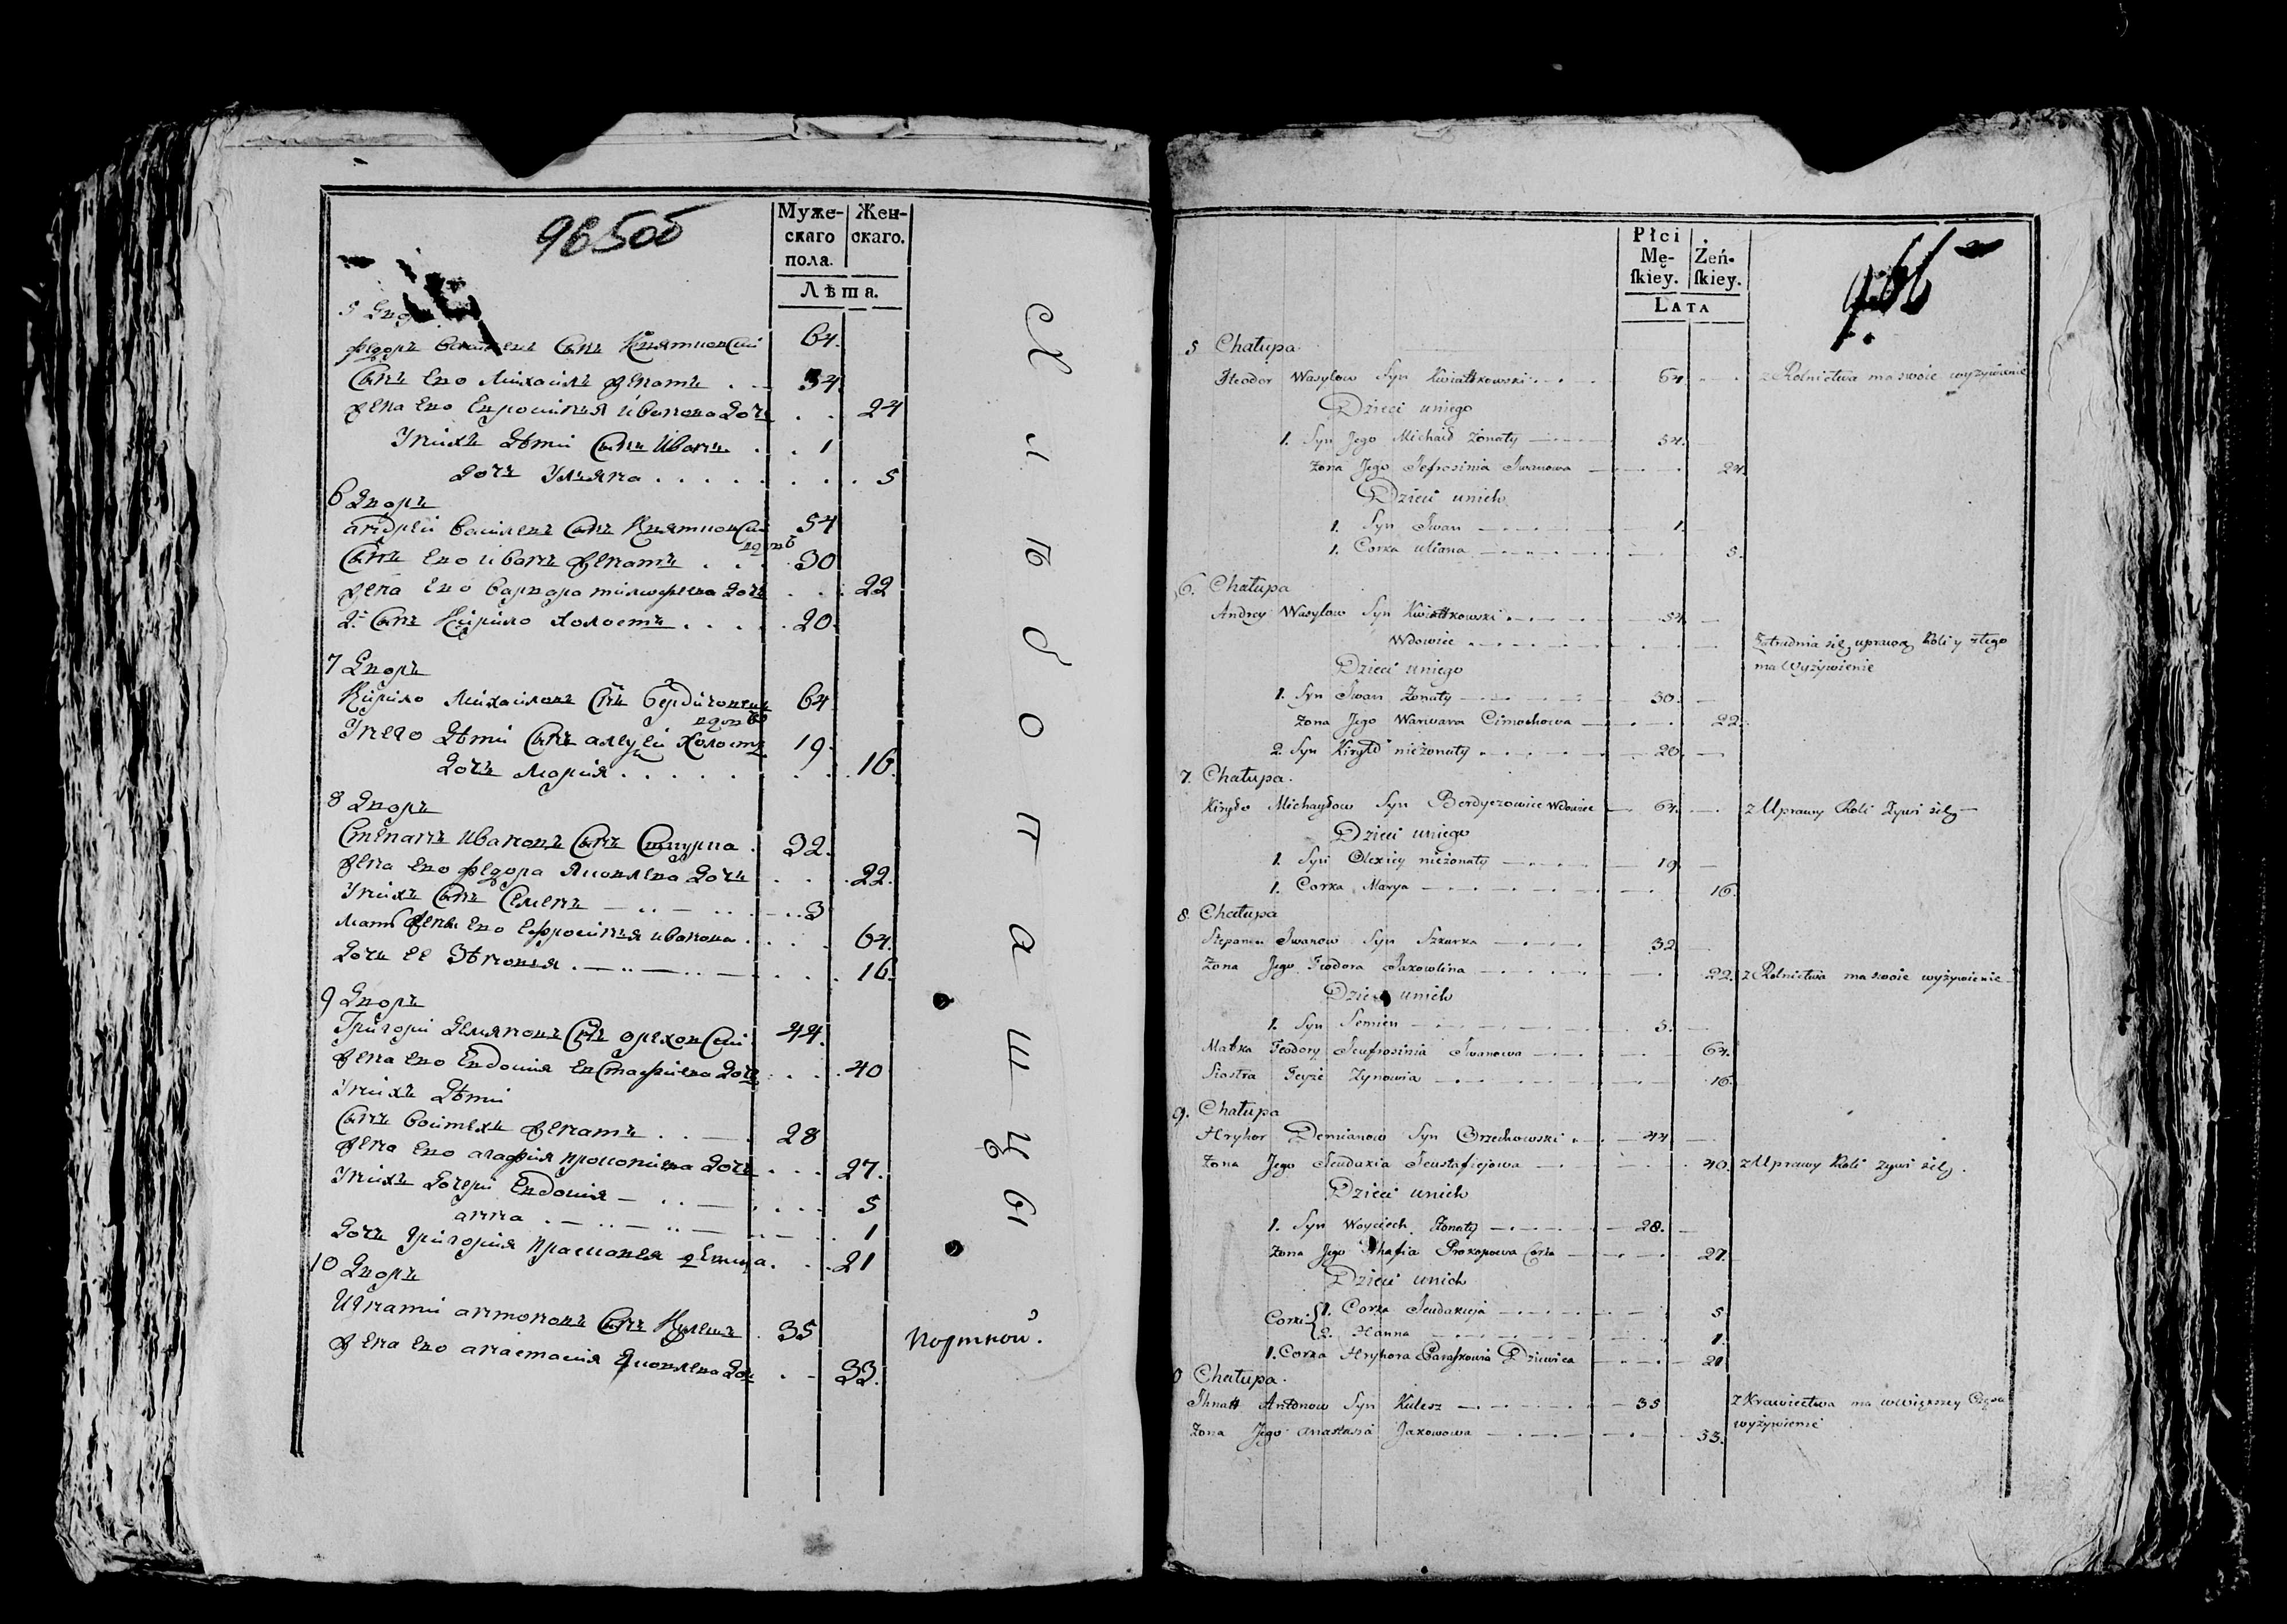 965об
Муже-
скаго
пола.
Жен-
скаго.
Лѣта.
5 Дво
Федоръ Сынъ Квятковскі 64.
Сынъ Ево Михаилъ Женатъ . — 34
Жена Ево Евросиния Иванова Дочь . . 24
У нихъ Дѣти Сынъ Иванъ . . 1
Дочь Ульяна . . . . . . . . . 5
6 Дворъ
Андрей Василевъ Сынъ Квятковскі 54
вдовъ
Сынъ Ево Иванъ Женатъ . . . 30
Жена Ево Варвара Тимофеева Дочь . . . 22
2й Сынъ Кирило Холостъ . . . . . 20.
7 Дворъ
Кирило Михаиловъ Сынъ Бердичовичъ 64
вдовъ
У него Дѣти Сынъ Алеѯей Холостъ 19.
Дочь Мария . . . . . . . . 16.
8 Дворъ
Степанъ Ивановъ Сынъ Шкурка . 32.
Жена Ево Федора Яковлева Дочь . . . 22.
У нихъ Сынъ Семенъ — .. — .. — .. 3
Мать Жены Ево Ефросиния Иванова . . . . 64.
Дочь ее Зѣновия . — .. — .. — . . . 16.
9 Дворъ
Григори Демяновъ Сынъ Ореховскі 44.
Жена Ево Евдокия Евстафиева Дочь . . . 40
У нихъ Дѣти
Сынъ Войтехъ Женатъ . . — . 28
Жена Ево Агафия Прокопиева Дочь . . . 27.
У нихъ Дочери Евдокия — . . — . . . . 5
Анна . — .. — .. — .. — . . 1
Дочь Григория Прасковея Девица . . . 21
10 Дворъ
Игнатиі Антоновъ Сынъ Кулешъ . 35
Жена Ево Анастасия Яковлева Дочь . — 33.
Хлѣбопашцы
Портной.
Płci
Mę-
ſkiey.
Żeń-
ſkiey.
Lata
5 Chałupa.
Fteodor Wasylow Syn Kwiattkowski . . — . 64. — . z Rolnictwa ma swoie wyżywienie
Dzieci uniego
1. Syn Jego Michaił żonaty — . — . 34.
Zona Jego Jefrosinia Jwanowa — . — . 24.
Dzieci unich
1. Syn Jwan — . — . — . 1.
1. Corka uliana — . — . — . — 5.
6. Chałupa
Andrey Wasylow Syn Kwiattkowski . — . — . 54. —
Wdowiec . — . — . — . — . —
Zatrudnia się uprawą Roli y ztego
ma Wyżywienie
Dzieci uniego
1. Syn Jwan Zonaty — . — . — 30. —
Zona Jego Warwara Cimochowa — . — . 22.
2. Syn Kiryło nieżonaty . — . — . — 20. —
7. Chałupa.
Kiryło Michayłow Syn Berdyczowicz Wdowiec — 64. — . z Uprawy Roli Zywi się —
Dzieci uniego
1. Syn Olexiey nieżonaty — . — . — 19. —
1. Corka Marya — . — . — . — 16.
8. Chałupa
Stepan Jwanow Syn Szkurka — . — . 32 —
Zona Jego Feodora Jakowlina — . — . — 22. z Rolnictwa ma swoie wyżywienie —
Dzieci unich
1. Syn Semien — . — . — . — 3. —
Matka Feodory Jeufrosinia Jwanowa — . — . — 64.
Siostra Teyże Zynowia — . — . — . — 16.
9. Chałupa
Hryhor Demianow Syn Orzechowski . — . 44 —
Zona Jego Jeudoxia Jeustafiejowa — . — . 40. z Uprawy Roli zywi się .
Dzieci unich
1. Syn Woyciech Zonaty — . — . — 28. —
Zona Jego Ahafia Prokopowa Corka — . — . 27.
Dzieci unich
Corki { 1. Corka Jeudokieja — . — . — 5.
2. Hanna — . — . — . — 1.
1. Corka Hryhora Paraskowia Dziewica — . — . 21
0 Chałupa.
Jhnatt Antonow Syn Kulesz — . — . — 35
z Krawiectwa ma wwiększey Części
wyżywienie
Zona Jego Anastasia Jakowowa — . — . — . 33.